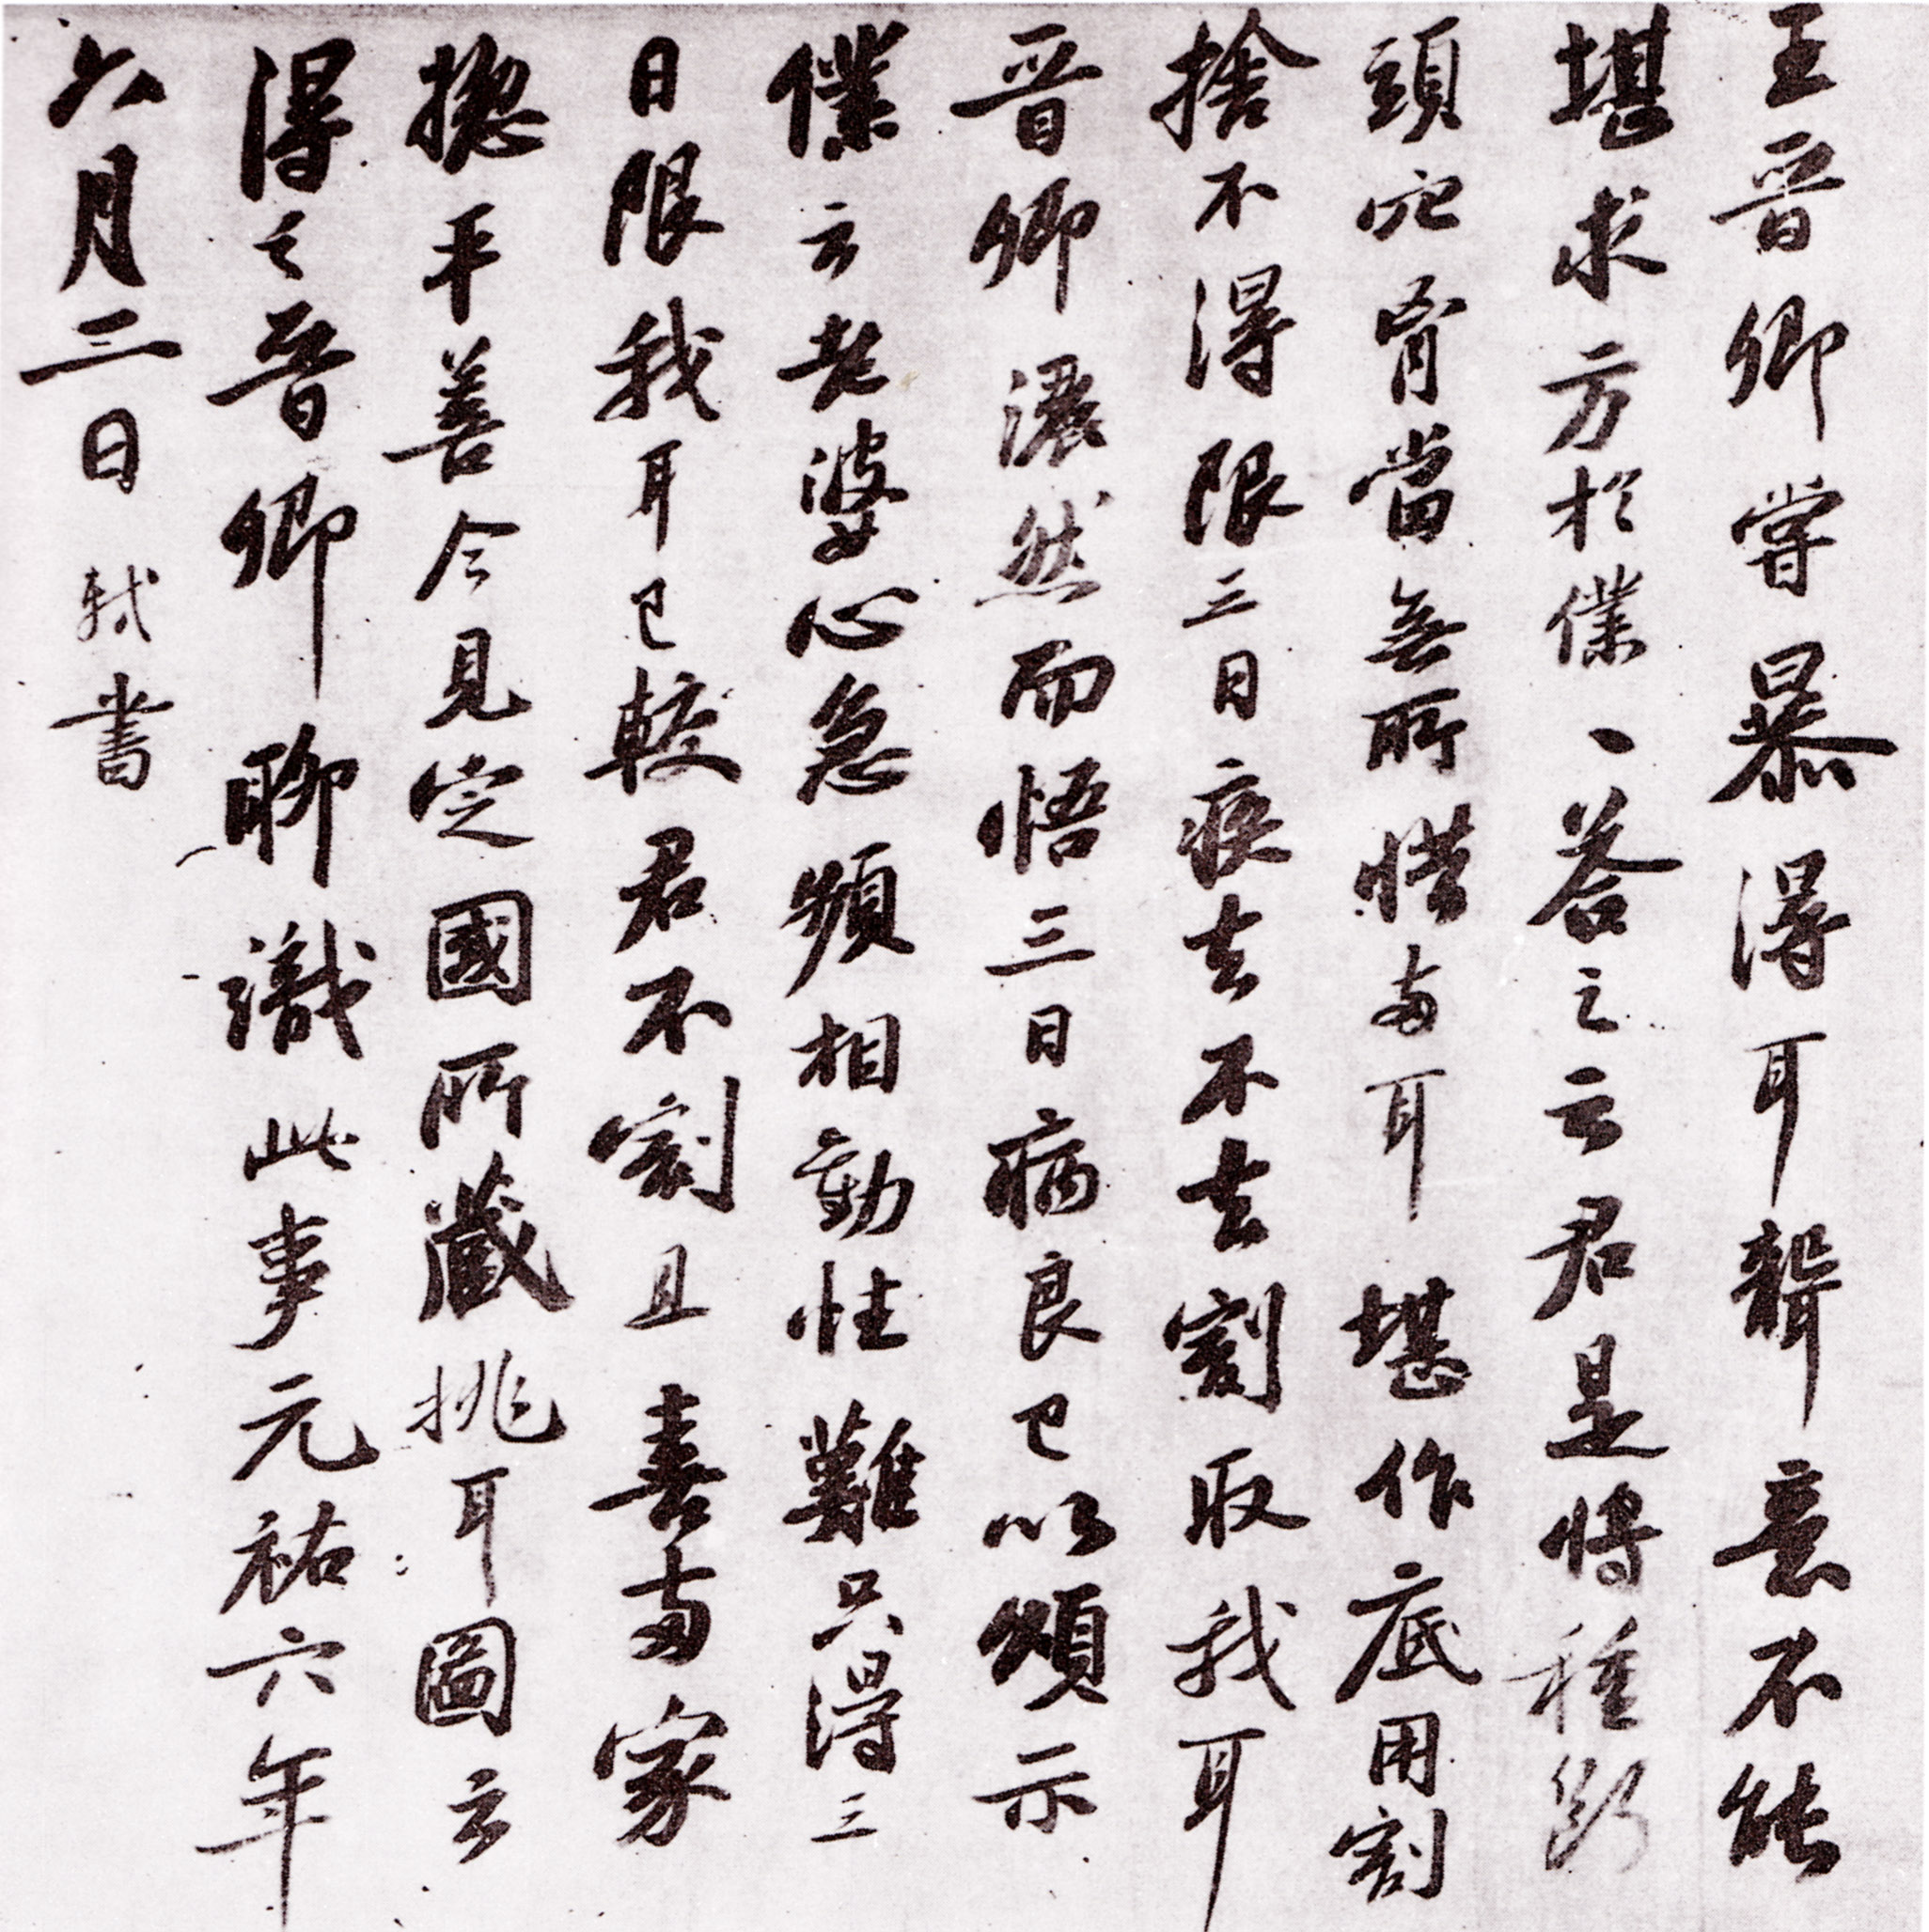 王晉卿嘗暴得耳聾意不能
堪求方於僕、答之云君是將種斷
頭穴胷當無所惜兩耳堪作底用割
捨不得限三日疾去不去割取我耳
晉卿灑然而悟三日病良已以頌示
僕云老婆心急頻相勸性難只得三
日限我耳已較君不割且喜兩家
揔平善今見定國所藏挑耳圖云
得之晉卿聊識此事元祐六年
六月二日軾書